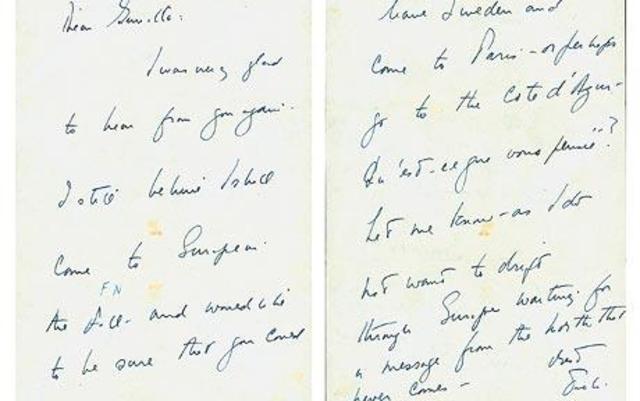 Dear Gunilla:
I was very glad
to hear from you again.
I still believe I shall
come to Europe in
FN
the fall - and would like
to be sure that you could
leave Sweden and
come to Paris - or perhaps
go to the Cote d'Azur -
Qu'est-ce que vous pensez?
Let me know - as I do
not want to drift
through Europe waiting for
a message from the north that
never comes -